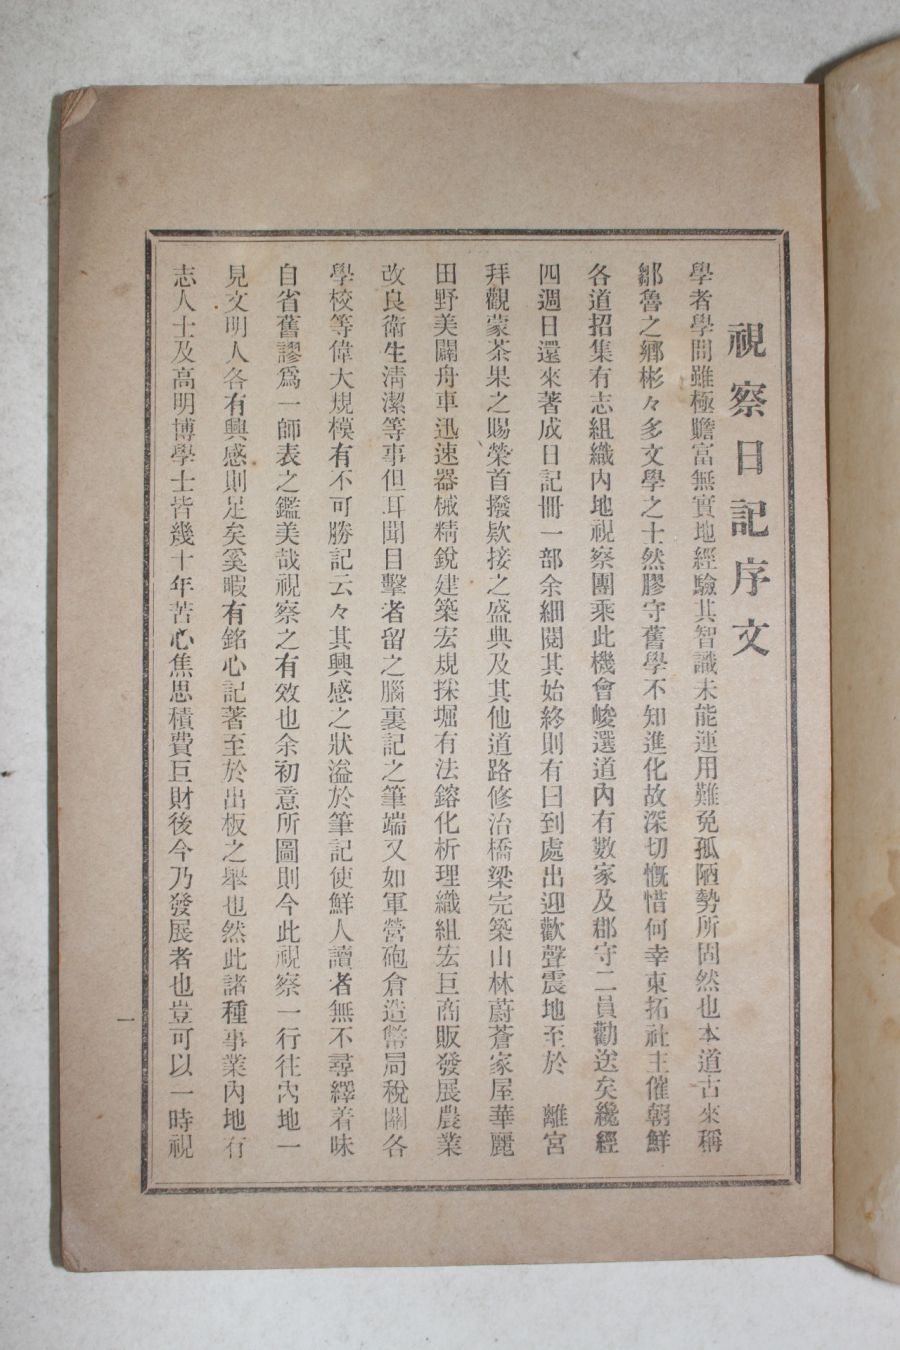 視察日記序文
學者學問雖極贍富無實地經驗其智識未能運用難免孤陋勢所固然也本道古來稱
鄒魯之鄕彬々多文學之士然膠守舊學不知進化故深切慨惜何幸東拓社主催朝鮮
各道招集有志組織內地視察團乘此機會峻選道內有數家及郡守二員勸送矣纔經
四週日還來著成日記冊一部余細閱其始終則有曰到處出迎歡聲震地至於　離宮
拜觀蒙茶果之賜榮首撥欵接之盛典及其他道路修治橋梁完築山林蔚蒼家屋華麗
田野美闢舟車迅速器械精銳建築宏規採堀有法鎔化析理織組宏巨商販發展農業
改良衛生淸潔等事但耳聞目擊者留之腦裏記之筆端又如軍營砲倉造幣局稅關各
學校等偉大規模有不可勝記云々其興感之狀溢於筆記使鮮人讀者無不尋繹着味
自省舊謬爲一師表之鑑美哉視察之有效也余初意所圖則今此視察一行往內地一
見文明人各有興感則足矣奚暇有銘心記著至於出板之擧也然此諸種事業內地有
志人士及高明博學士皆幾十年苦心焦思積費巨財後今乃發展者也豈可以一時視
一